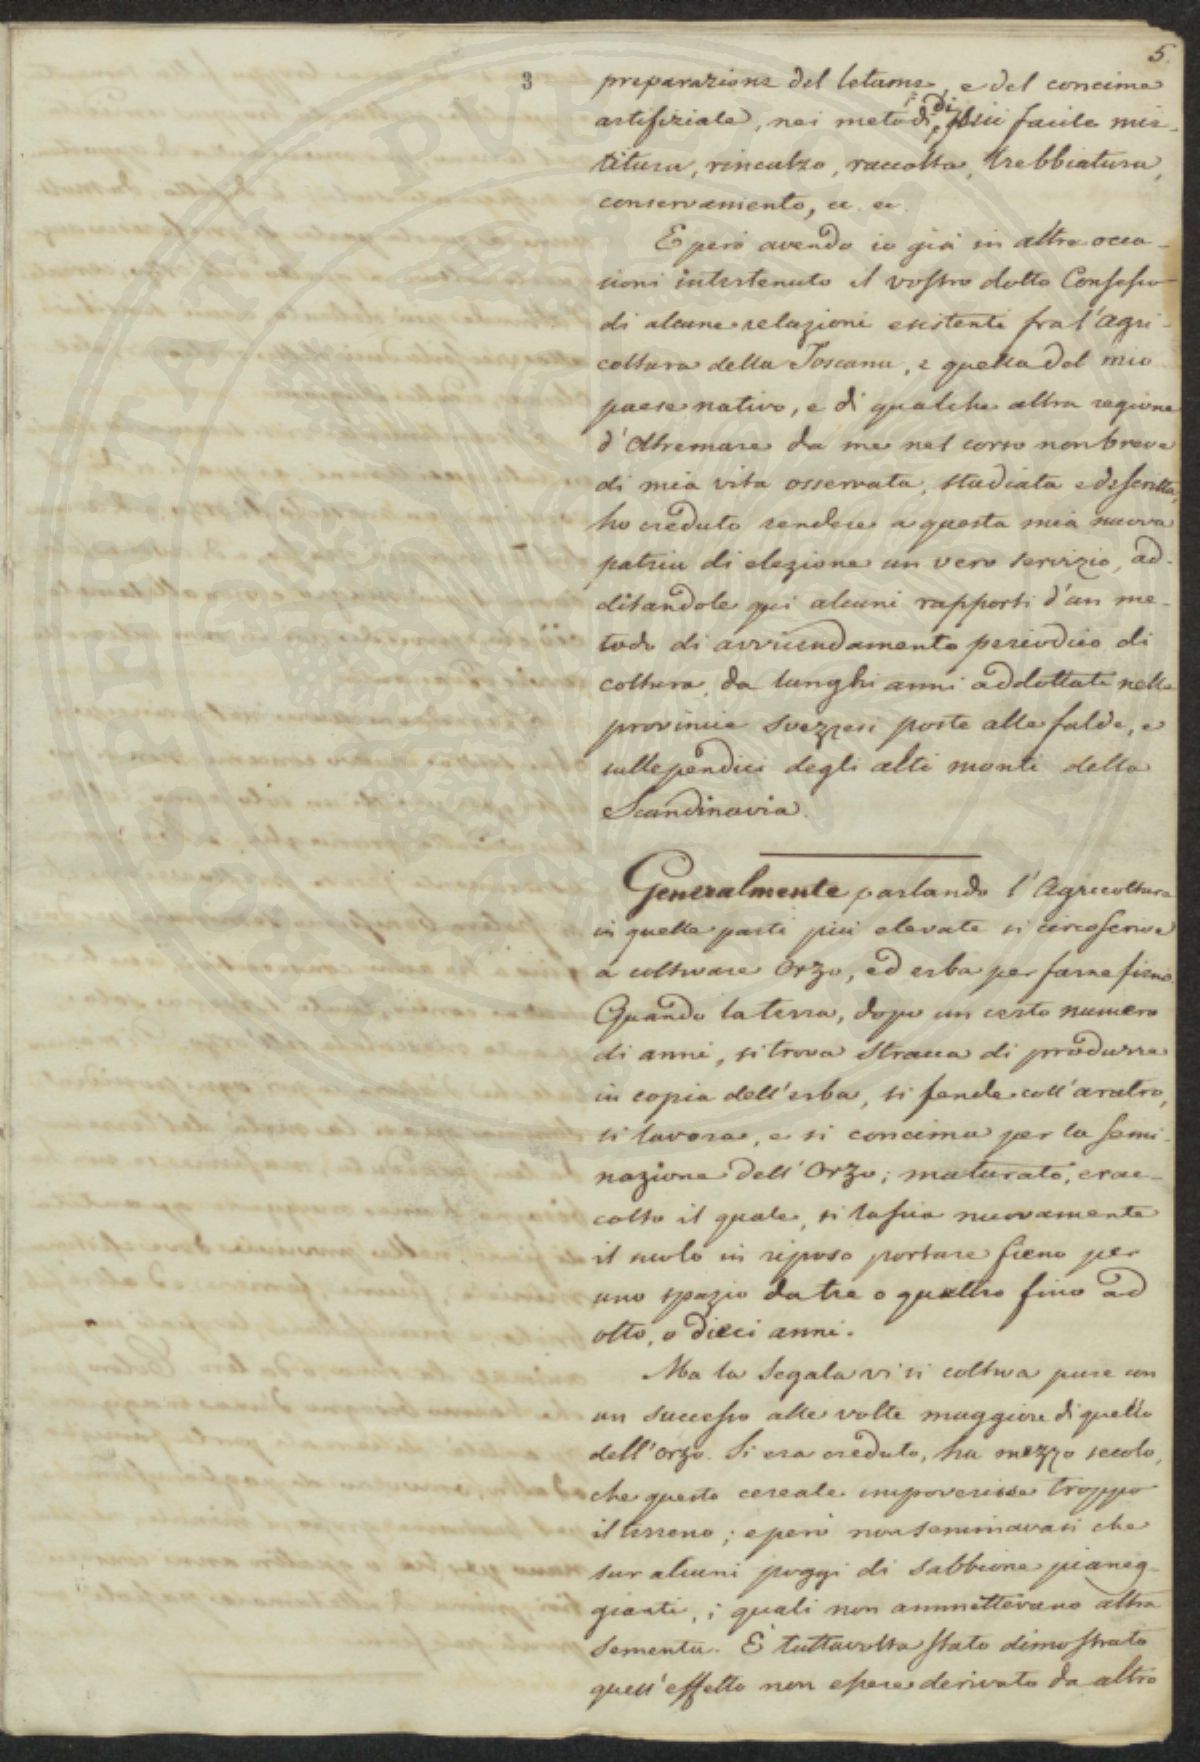 5.
3
preparazione del letame, e del concime
artifiziale, nei metodi di più facile mie-
titura, rincalzo, raccolta, trebbiatura,
conservamento, ec. ec.
E però avendo io già in altre occa-
sioni intertenuto il vostro dotto Consesso
di alcune relazioni esistenti fra l'Agri-
coltura della Toscana, e quella del mio
paese nativo, e di qualche altra regione
d'Oltremare da me nel corso non breve
di mia vita osservata, studiata e descritta,
ho creduto rendere a questa mia nuova
patria di elezione un vero servizio, ad-
ditandole qui alcuni rapporti d'un me-
todo di avvicendamento periodico di
coltura, da lunghi anni addottati nelle
provincie svezzesi poste alle falde, e
sulle pendici degli alti monti della
Scandinavia.
Generalmente parlando l'Agricoltura
in quelle parti più elevate si circoscrive
a coltivare Orzo, ed erba per farne fieno.
Quando la terra, dopo un certo numero
di anni, si trova stracca di produrre
in copia dell'erba, si fende coll'aratro,
si lavora, e si concima per la semi-
nazione dell'Orzo; maturato, e rac-
colto il quale, si lascia nuovamente
il suolo in riposo portare fieno per
uno spazio da tre o quattro fino ad
otto, o dieci anni.
Ma la Segala vi si coltiva pure con
un successo alle volte maggiore di quello
dell'orzo. Si era creduto, ha mezzo secolo,
che questo cereale impoverisse troppo
il terreno; e però non seminavasi che
sur alcuni poggi di sabbione pianeg-
gianti, i quali non ammettevano altra
sementa. È tuttavolta stato dimostrato
quell'effetto non essere derivato da altro